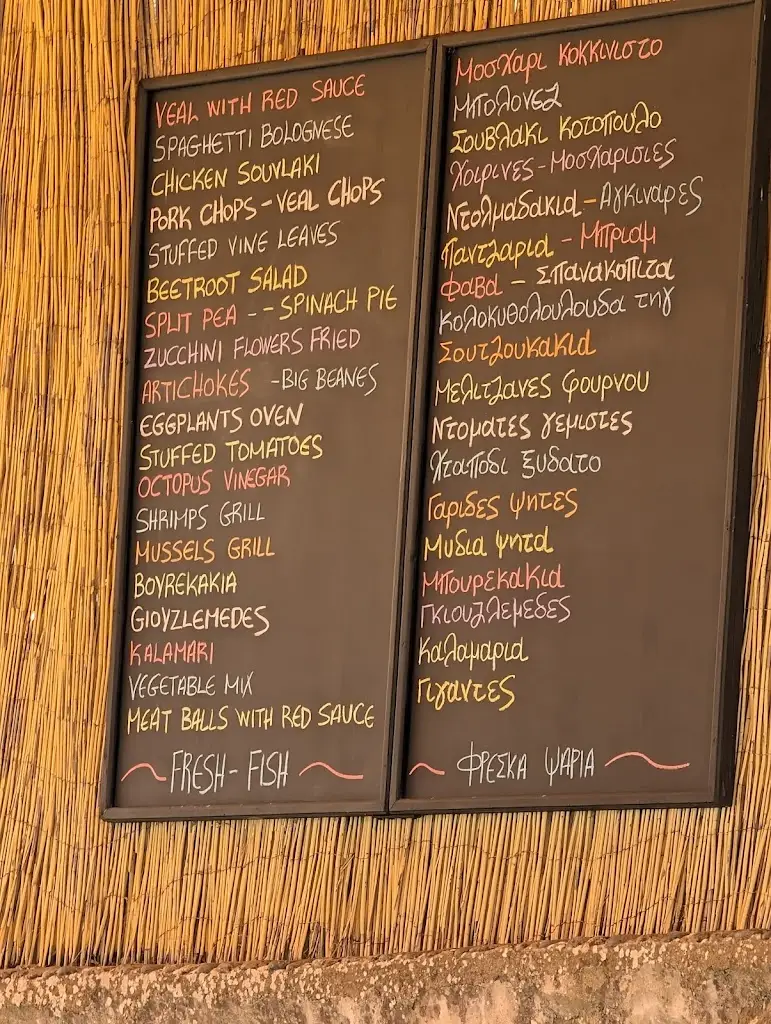 VEAL WITH RED SAUCE
SPAGHETTI BOLOGNESE
CHICKEN SOUVLAKI
PORK CHOPS - VEAL CHOPS
STUFFED VINE LEAVES
BEETROOT SALAD
SPLIT PEA - - SPINACH PIE
ZUCCHINI FLOWERS FRIED
ARTICHOKES - BIG BEANES
EGGPLANTS OVEN
STUFFED TOMATOES
OCTOPUS VINEGAR
SHRIMPS GRILL
MUSSELS GRILL
BOYREKAKIA
GIOYZLEMEDES
KALAMARI
VEGETABLE MIX
MEAT BALLS WITH RED SAUCE
FRESH - FISH
Μοσχαρι κοκκινιστο
Μπολονεζ
Σουβλακι κοτοπουλο
Χοιρινες - Μοσχαρισιες
Ντολμαδακια - Αγκιναρες
Πανтζαρια - Μπριαμ
Φαβα - Σπανακοπιτα
Κολοκυθολουλουδα τηγ
Σουτζουκακια
Μελιτζανες φουρνου
Ντοματες γεμιστες
Χταποδι ξυδατο
Γαριδες ψητες
Μυδια ψητα
Μπουρεκακια
Γκιουζλεμεδες
Καλαμαρια
Γιγαντες
ΦΡΕΣΚΑ ΨΑΡΙΑ